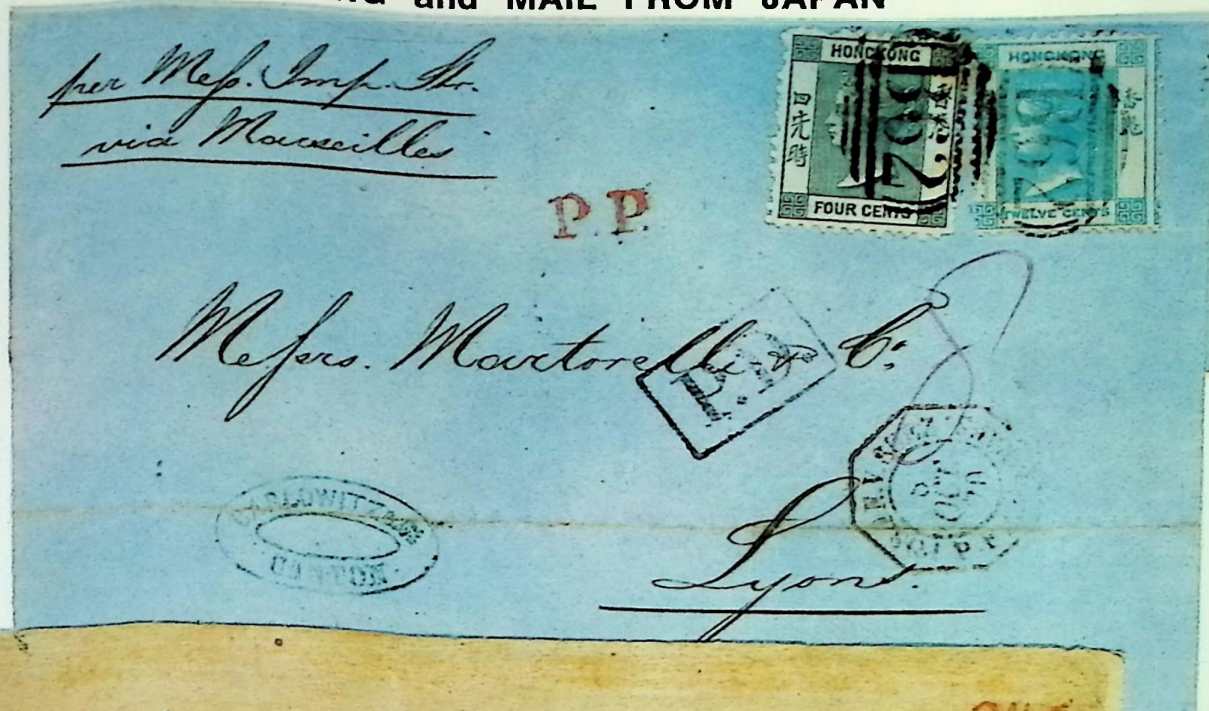 and MAIL FROM JAPAN
per Mess. Imp. Str.
via Marseilles
HONGKONG
四先時
FOUR CENTS
B62
HONGKONG
香港
TWELVE CENTS
B62
P.P.
Messrs. Martorelli & Co.
P.D.
CARLOWITZ & Co
CANTON
Lyons.
8
OCT
70